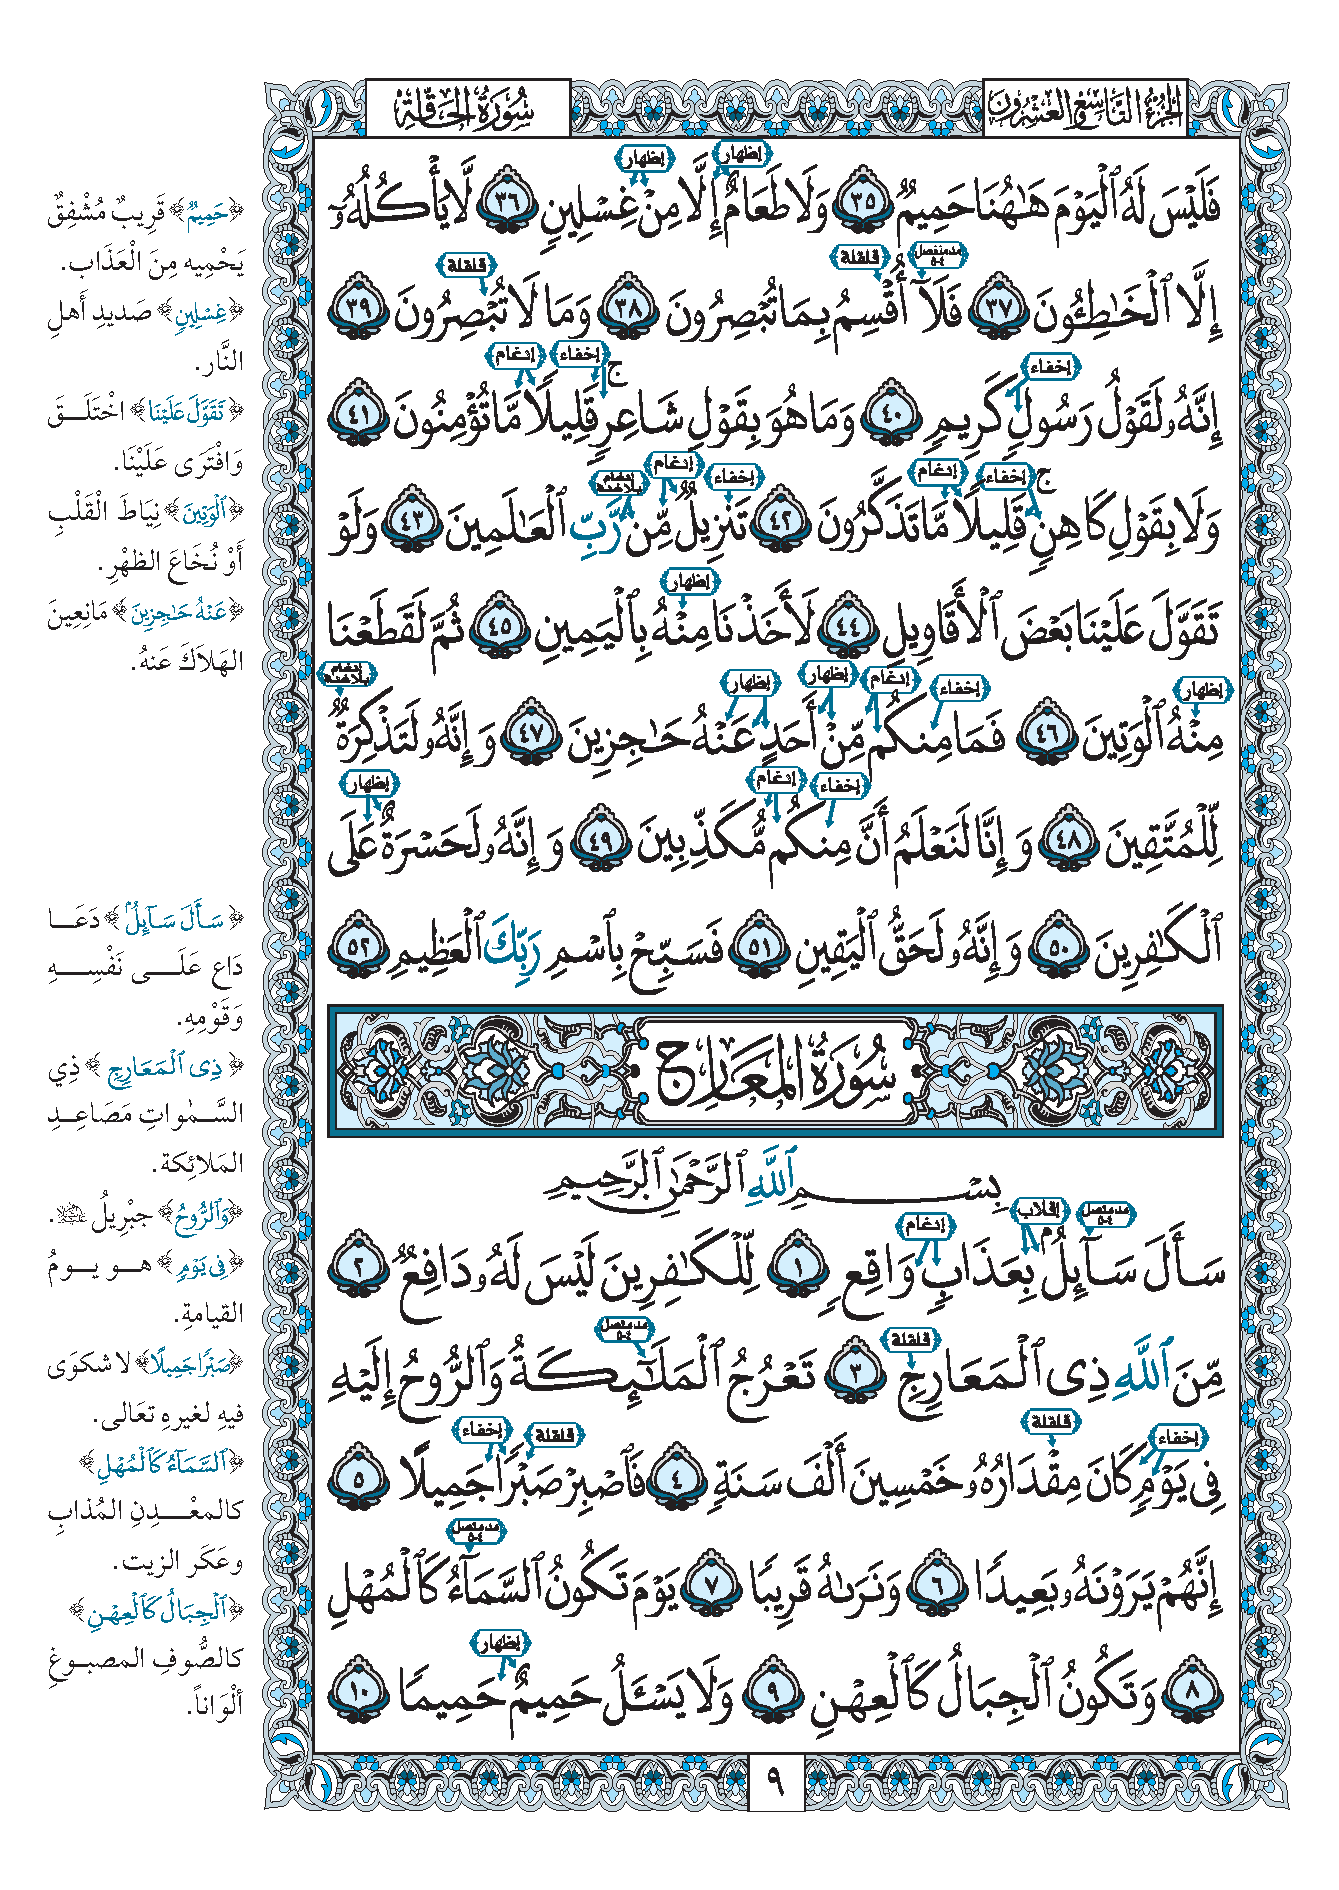 الجزء التاسع والعشرون
سورة الحاقة
فَلَيْسَ لَهُ ٱلْيَوْمَ هَٰهُنَا حَمِيمٌ ٣٥ وَلَا طَعَامٌ إِلَّا مِنْ غِسْلِينٍ ٣٦ لَّا يَأْكُلُهُۥٓ
إِلَّا ٱلْخَٰطِـُٔونَ ٣٧ فَلَآ أُقْسِمُ بِمَا تُبْصِرُونَ ٣٨ وَمَا لَا تُبْصِرُونَ ٣٩
إِنَّهُۥ لَقَوْلُ رَسُولٍ كَرِيمٍ ٤٠ وَمَا هُوَ بِقَوْلِ شَاعِرٍ ۚ قَلِيلًا مَّا تُؤْمِنُونَ ٤١
وَلَا بِقَوْلِ كَاهِنٍ ۚ قَلِيلًا مَّا تَذَكَّرُونَ ٤٢ تَنزِيلٌ مِّن رَّبِّ ٱلْعَٰلَمِينَ ٤٣ وَلَوْ
تَقَوَّلَ عَلَيْنَا بَعْضَ ٱلْأَقَاوِيلِ ٤٤ لَأَخَذْنَا مِنْهُ بِٱلْيَمِينِ ٤٥ ثُمَّ لَقَطَعْنَا
مِنْهُ ٱلْوَتِينَ ٤٦ فَمَا مِنكُم مِّنْ أَحَدٍ عَنْهُ حَٰجِزِينَ ٤٧ وَإِنَّهُۥ لَتَذْكِرَةٌ
لِّلْمُتَّقِينَ ٤٨ وَإِنَّا لَنَعْلَمُ أَنَّ مِنكُم مُّكَذِّبِينَ ٤٩ وَإِنَّهُۥ لَحَسْرَةٌ عَلَى
ٱلْكَٰفِرِينَ ٥٠ وَإِنَّهُۥ لَحَقُّ ٱلْيَقِينِ ٥١ فَسَبِّحْ بِٱسْمِ رَبِّكَ ٱلْعَظِيمِ ٥٢
سُورَةُ المَعَارِج
بِسْمِ ٱللَّهِ ٱلرَّحْمَٰنِ ٱلرَّحِيمِ
سَأَلَ سَآئِلٌۢ بِعَذَابٍ وَاقِعٍ ١ لِّلْكَٰفِرِينَ لَيْسَ لَهُۥ دَافِعٌ ٢
مِّنَ ٱللَّهِ ذِى ٱلْمَعَارِجِ ٣ تَعْرُجُ ٱلْمَلَٰٓئِكَةُ وَٱلرُّوحُ إِلَيْهِ
فِى يَوْمٍ كَانَ مِقْدَارُهُۥ خَمْسِينَ أَلْفَ سَنَةٍ ٤ فَٱصْبِرْ صَبْرًا جَمِيلًا ٥
إِنَّهُمْ يَرَوْنَهُۥ بَعِيدًا ٦ وَنَرَىٰهُ قَرِيبًا ٧ يَوْمَ تَكُونُ ٱلسَّمَآءُ كَٱلْمُهْلِ
٨ وَتَكُونُ ٱلْجِبَالُ كَٱلْعِهْنِ ٩ وَلَا يَسْـَٔلُ حَمِيمٌ حَمِيمًا ١٠
٩
إظهار
إظهار
مد منفصل ٤-٥
قلقلة
قلقلة
إخفاء
إخفاء
إدغام
إخفاء
إدغام
إخفاء
إدغام
إدغام بلا غنة
إظهار
إظهار
إخفاء
إدغام
إظهار
إظهار
إدغام بلا غنة
إخفاء
إدغام
إظهار
مد متصل ٤-٥
إقلاب
إدغام
قلقلة
مد متصل ٤-٥
إخفاء
قلقلة
قلقلة
إخفاء
مد متصل ٤-٥
إظهار
﴿حَمِيمٌ﴾ قَرِيبٌ مُشْفِقٌ
يَحْمِيهِ مِنَ الْعَذَابِ.
﴿غِسْلِينٍ﴾ صَدِيدِ أَهلِ
النَّارِ.
﴿تَقَوَّلَ عَلَيْنَا﴾ اخْتَلَــقَ
وَافْتَرَى عَلَيْنَا.
﴿ٱلْوَتِينَ﴾ نِيَاطَ الْقَلْبِ
أَوْ نُخَاعَ الظهْرِ.
﴿عَنْهُ حَٰجِزِينَ﴾ مَانِعِينَ
الهَلاَكَ عَنهُ.
﴿سَأَلَ سَآئِلٌۢ﴾ دَعَــا
دَاعٍ عَلَــى نَفْسِــهِ
وَقَوْمِهِ.
﴿ذِى ٱلْمَعَارِجِ﴾ ذِي
السَّـمٰواتِ مَصَاعِــدِ
المَلائِكة.
﴿وَٱلرُّوحُ﴾ جبْرِيلُ ﵇.
﴿فِى يَوْمٍ﴾ هــو يــومُ
القيامةِ.
﴿صَبْرًا جَمِيلًا﴾ لا شكوَى
فيهِ لغيرِهِ تعَالى.
﴿ٱلسَّمَآءُ كَٱلْمُهْلِ﴾
كالمعْــدِنِ المُذابِ
وعَكَرِ الزيت.
﴿ٱلْجِبَالُ كَٱلْعِهْنِ﴾
كالصُّوفِ المصبــوغِ
أَلْوَاناً.